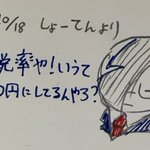 10/18 しょーてんより
税率や!いうて
0円にしてるんやろ?